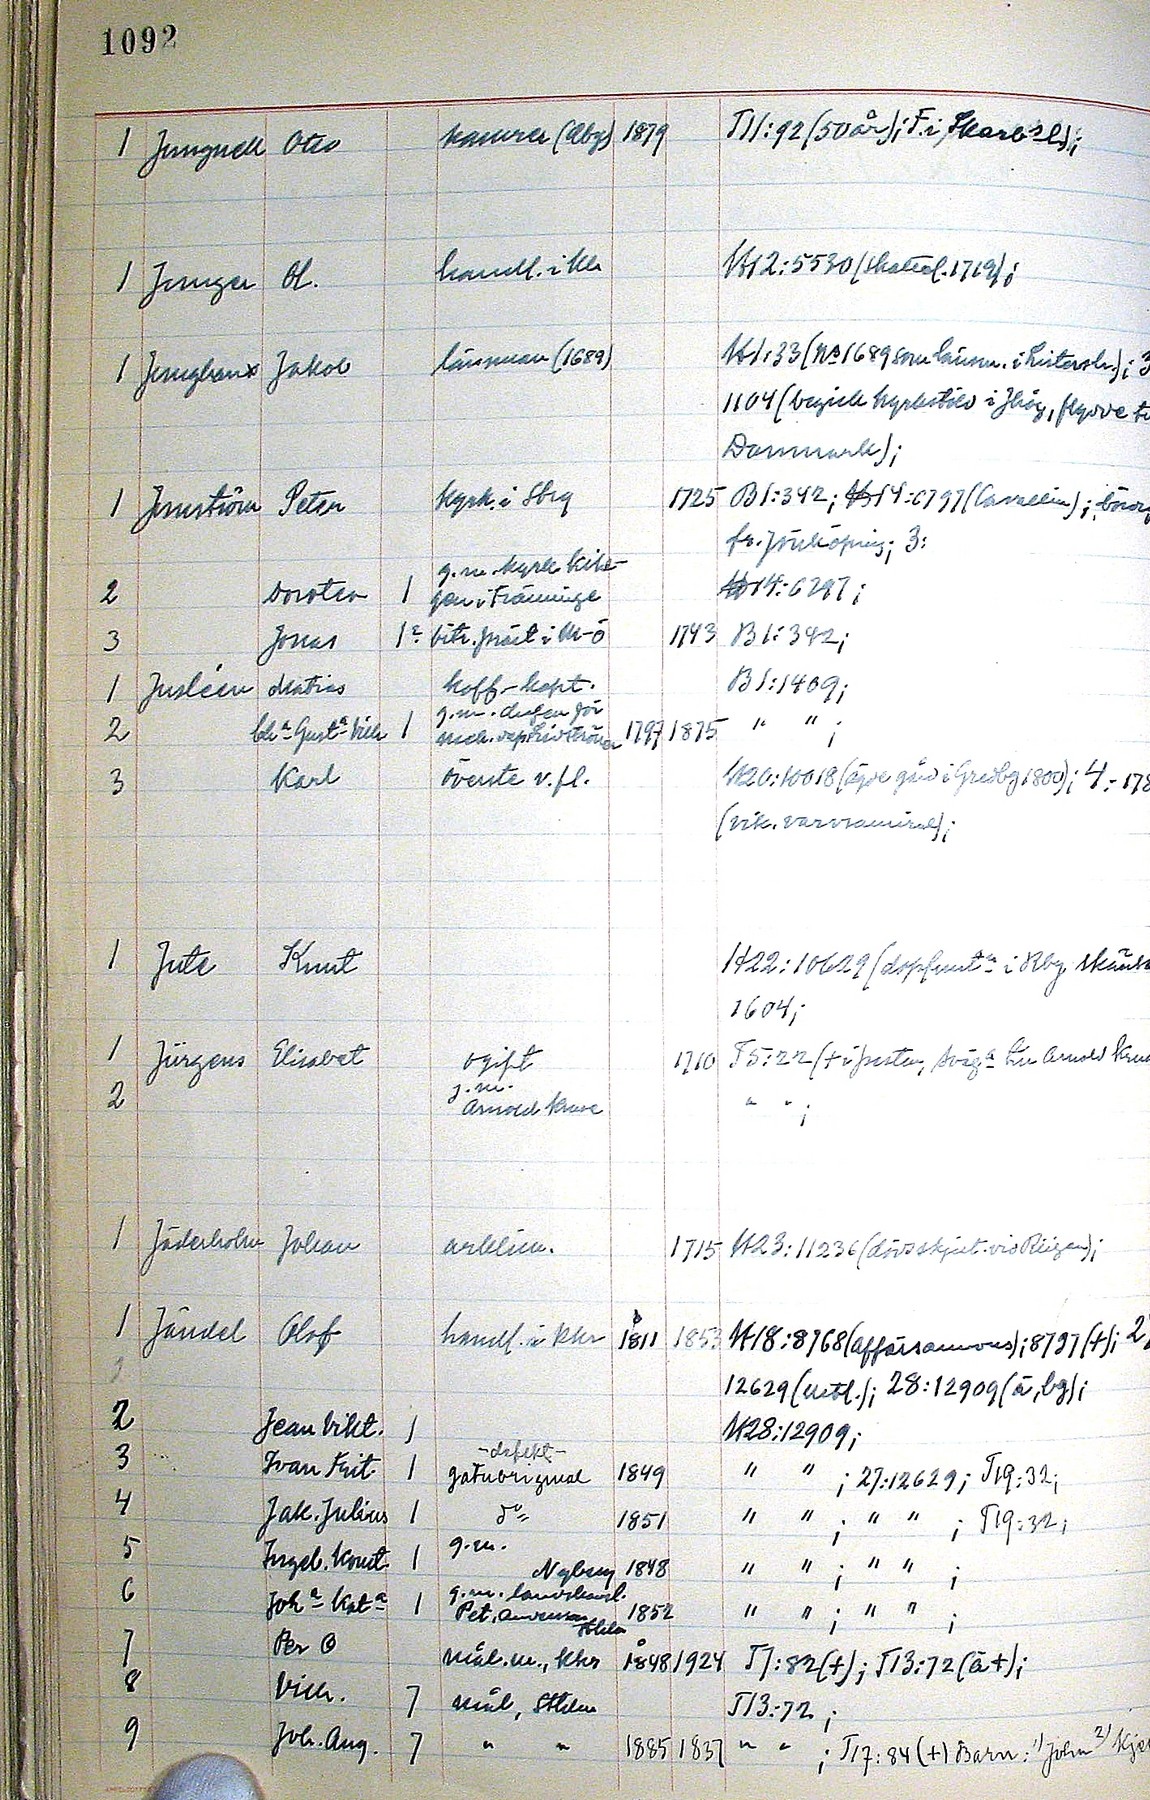 1092
1 Jungnell Otto kamrer (Abg) 1879 T11:92 (50 år); F. i
1 Junger Ol. handl. i Kla H12:5530 (skattel. 1719);
1 Jungbaux Jakob länsman (1689) H1:33 (n. 1689 som länsm. i Listersh.); 3
1104 (begick kyrkstöld i Jhög, flydde t
Danmark);
1 Junström Peter kyrk. i Sbg 1725 B1:342; H14:6797 (Cavallin);
fr. Jönköping; 3:
g.m. kyrk
2 Doroter 1 i Tranninge H14:6297;
3 Jonas 1 bitr. präst i M-ö 1743 B1:342;
1 Juslén Matias koff-kapt. B1:1409;
g.m.
2 Gust. Vilh 1 1797 1875 " " ;
3 Karl överste v. fl. H20:10018 (ägde gård i Gredbg 1800); 4:178
(vik. varvsamiral);
1 Jute Knut H22:10629 (dopfunt i Rbg
1604;
1 Jürgens Elisabet ogift 1710 T5:22 (+ i pesten, hu Arnold
g.m.
2 Arnold Kruse " " ;
1 Jäderholm Johan 1715 H23:11236 (dödsskjut. vid Rügen);
1 Jändel Olof handl. i Khr 1811 1853 H18:8768 (affärsannons); 8797 (+); 2
12629 (utfl.); 28:12909 (ä, bg);
2 Jean Vikt. 1 H28:12909;
-defekt-
3 Ivan Frit. 1 gatuoriginal 1849 " " ; 27:12629; T19:32;
4 Jak. Julius 1 d:o 1851 " " ; " " ; T19:32;
5 Ingeb. Konst. 1 g.m.
Nyberg 1848 " " ; " " ;
6 Joh:a Kat:a 1 g.m. landskansl.
Pet. Andersson Sthlm 1852 " " ; " " ;
7 Per O mål.m., Khr 1848 1924 T7:82 (+); T13:72 (ä+);
8 Vilh. 7 mål, Sthlm T13:72;
9 Joh. Aug. 7 " " 1885 1937 " " ; T17:84 (+) Barn: 1) John 2)